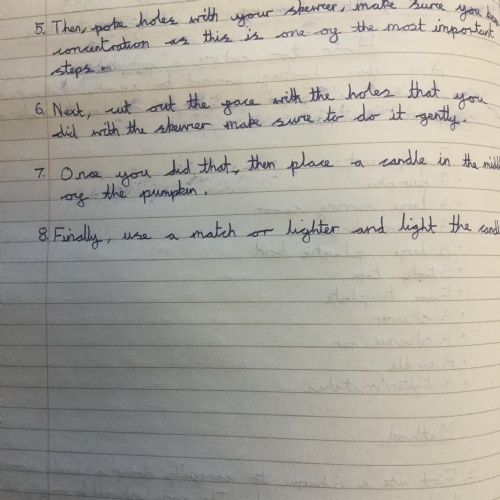 5. Then, poke holes with your skewer, make sure you
concentration as this is one og the most important
steps.
6. Next, cut out the gace with the holes that you
did with the skewer make sure to do it gently.
7. Once you did that, then place a candle in the
og the pumpkin.
8. Finally, use a match or lighter and light the